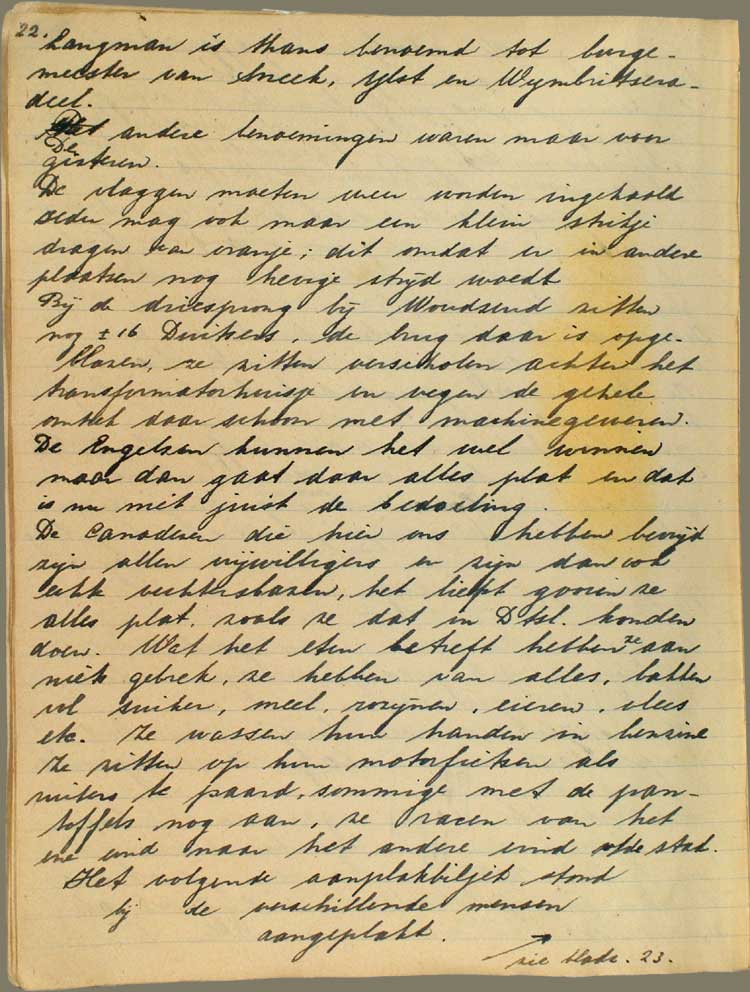 22.
Langman is thans benoemd tot burge-
meester van Sneek, Ylst en Wymbritsera-
deel.
De andere benoemingen waren maar voor
gisteren.
De vlaggen moeten weer worden ingehaald
ieder mag ook maar een klein strikje
dragen van oranje; dit omdat er in andere
plaatsen nog hevige strijd woedt
Bij de driesprong bij Woudsend zitten
nog ± 16 Duitsers, de brug daar is opge-
blazen, ze zitten verscholen achter het
transformatorhuisje en vegen de gehele
omtrek daar schoon met machinegeweren.
De Engelsen kunnen het wel winnen
maar dan gaat daar alles plat en dat
is nu niet juist de bedoeling.
De Canadezen die hier ons hebben bevrijd
zijn allen vrijwilligers en zijn dan ook
echte vechtersbazen, het liefst gooien ze
alles plat, zoals ze dat in Dtsl. konden
doen. Wat het eten betreft hebben ze aan
niets gebrek, ze hebben van alles, bakken
vol suiker, meel, rozijnen, eieren, vlees
etc. Ze wassen hun handen in benzine
Ze zitten op hun motorfietsen als
ruiters te paard, sommige met de pan-
toffels nog aan, ze racen van het
ene eind naar het andere eind v/de stad.
Het volgende aanplakbiljet stond
bij de verschillende mensen
aangeplakt.
zie bladz. 23.